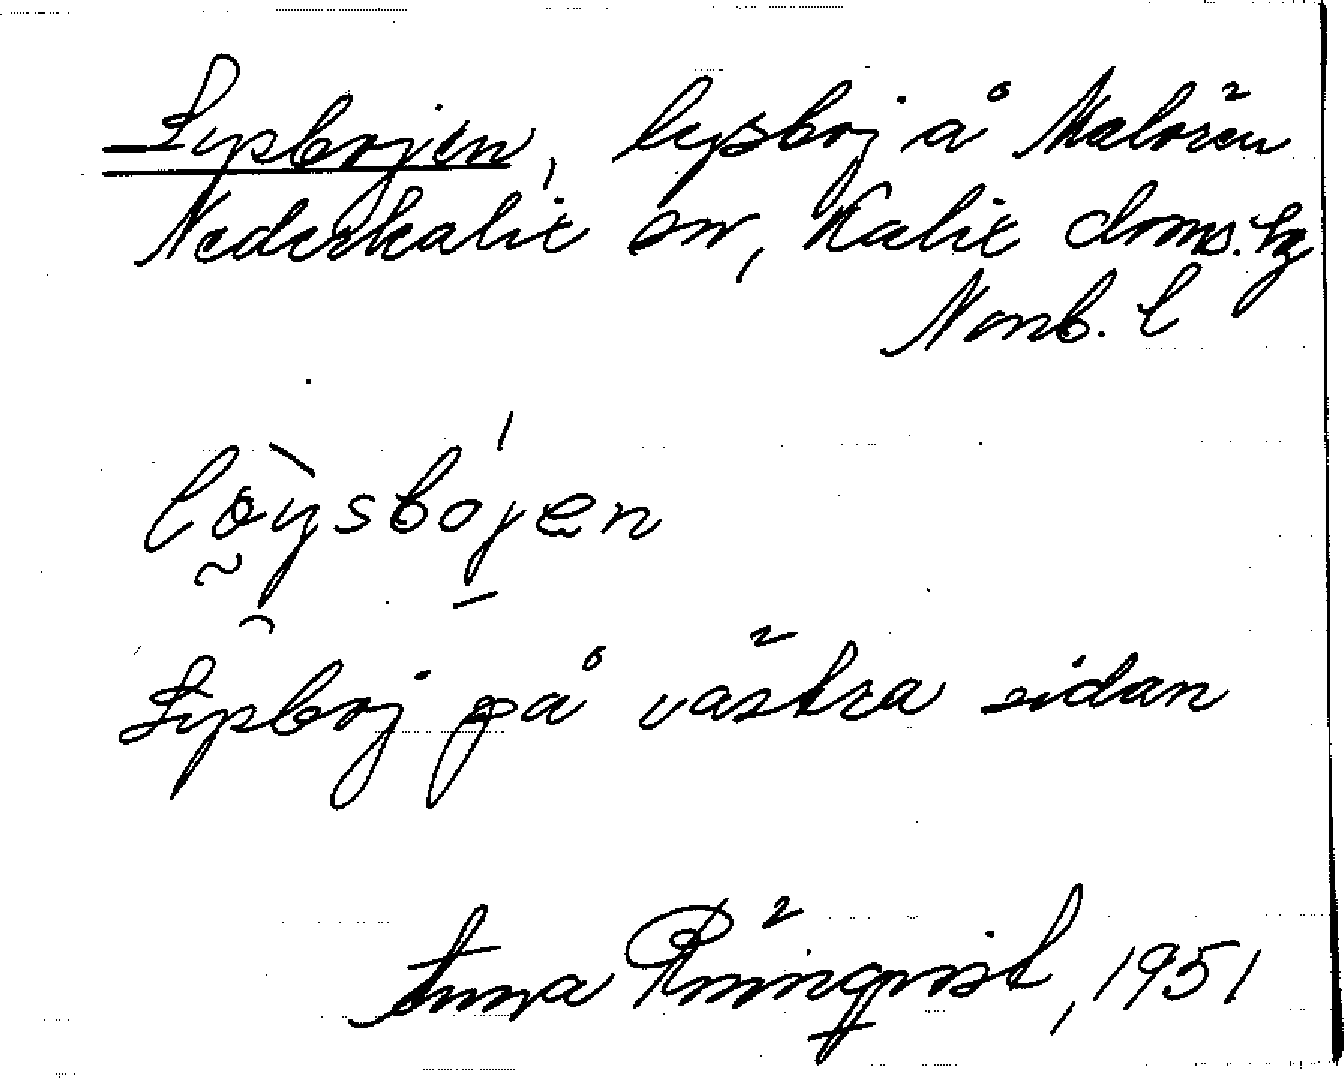 Lysbojen, lysboj å Malören
Nederkalix sn, Kalix doms.lg
Norrb. l
lö̀ysbójen
Lysboj på västra sidan
Anna , 1951